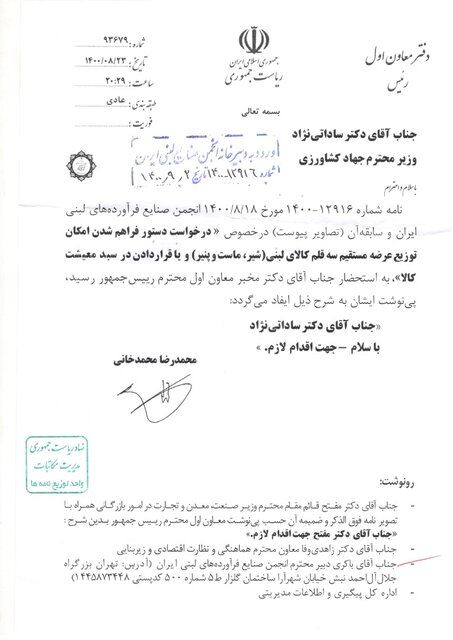 دفتر معاون اول
رئیس
جمهوری اسلامی ایران
ریاست جمهوری
شماره: ۹۳۶۷۹
تاریخ: ۱۴۰۰/۰۸/۲۳
ساعت: ۲۰:۲۹
طبقه بندی: عادی
فوریت:
بسمه تعالی
جناب آقای دکتر ساداتی‌نژاد
وزیر محترم جهاد کشاورزی
ورود به دبیرخانه انجمن صنایع لبنی ایران
شماره ۱۴۰۰-۱۲۹۱۶ تاریخ ۱۴۰۰/۹/۲
با سلام و احترام
نامه شماره ۱۲۹۱۶-۱۴۰۰ مورخ ۱۴۰۰/۸/۱۸ انجمن صنایع فرآورده‌های لبنی
ایران و سابقه آن (تصاویر پیوست) درخصوص «درخواست دستور فراهم شدن امکان
توزیع عرضه مستقیم سه قلم کالای لبنی(شیر، ماست و پنیر) و یا قراردادن در سبد معیشت
کالا»، به استحضار جناب آقای دکتر مخبر معاون اول محترم رییس‌جمهور رسید،
پی‌نوشت ایشان به شرح ذیل ایفاد می‌گردد:
«جناب آقای دکتر ساداتی‌نژاد
با سلام – جهت اقدام لازم.»
محمدرضا محمدخانی
نهاد ریاست جمهوری
مدیریت مکاتبات
واحد توزیع نامه ها
رونوشت:
- جناب آقای دکتر مفتح قائم مقام محترم وزیر صنعت، معدن و تجارت در امور بازرگانی همراه با
تصویر نامه فوق الذکر و ضمیمه آن حسب پی‌نوشت معاون اول محترم رییس جمهور بدین شرح :
«جناب آقای دکتر مفتح جهت اقدام لازم.»
- جناب آقای دکتر زاهدی‌وفا معاون محترم هماهنگی و نظارت اقتصادی و زیربنایی
- جناب آقای باکری دبیر محترم انجمن صنایع فرآورده‌های لبنی ایران (آدرس: تهران بزرگراه
جلال‌آل‌احمد نبش خیابان شهرآرا ساختمان گلزار ط۵ شماره ۵۰۰ کدپستی ۱۴۴۵۸۷۳۴۴۸)
- اداره کل پیگیری و اطلاعات مدیریتی